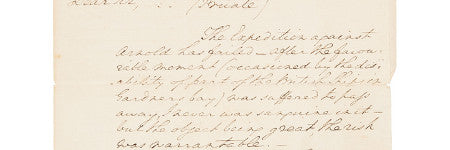 Dear Sir, .. (Private)
The Expedition against
Arnold has failed – after the favou
rable moment (occasioned by the dis-
ability of part of the British ships in
Gardners bay) was suffered to pass
away, I never was sanguine in it –
but the object being great the risk
was warrantable. –